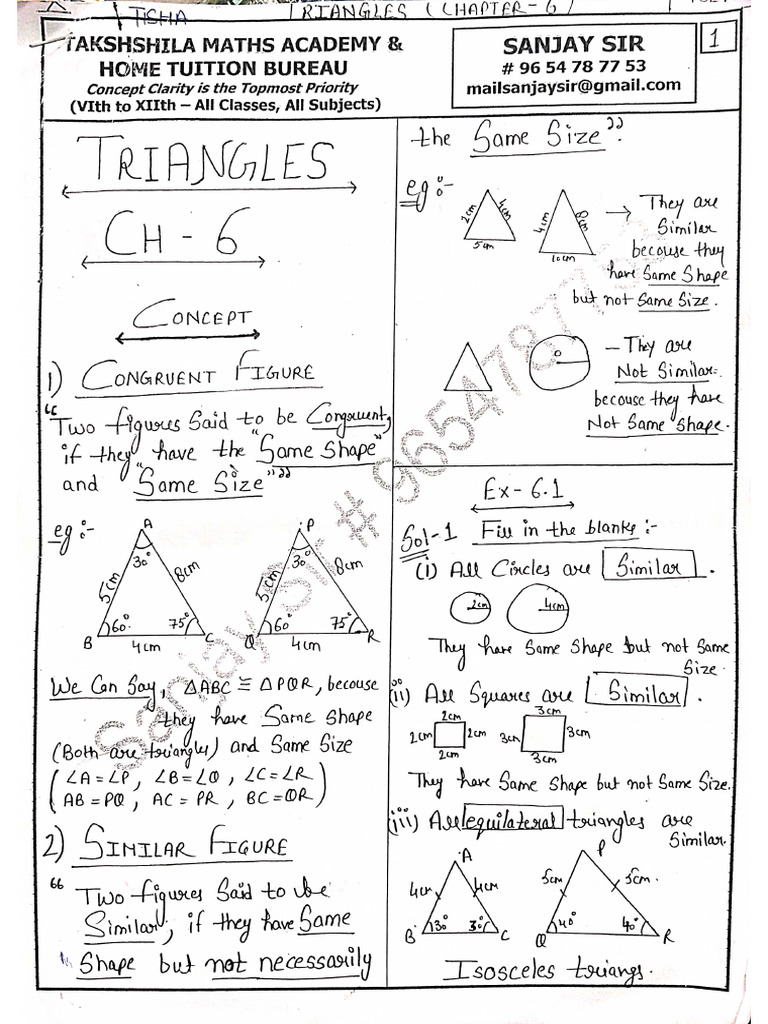 TISHA
TRIANGLES (CHAPTER-6)
TAKSHSHILA MATHS ACADEMY &
HOME TUITION BUREAU
Concept Clarity is the Topmost Priority
(VIth to XIIth – All Classes, All Subjects)
SANJAY SIR
# 96 54 78 77 53
mailsanjaysir@gmail.com
1
TRIANGLES
CH - 6
CONCEPT
1) CONGRUENT FIGURE
"Two figures Said to be Congruent,
if they have the "Same Shape"
and "Same Size""
eg:-
A
30°
5cm
8cm
60°
75°
B
4cm
C
P
30°
5cm
8cm
60°
75°
Q
4cm
R
We Can Say, △ABC ≅ △PQR, becouse
they have Same Shape
(Both are triangles) and Same Size
(∠A=∠P, ∠B=∠Q, ∠C=∠R
AB=PQ, AC=PR, BC=QR)
2) SIMILAR FIGURE
"Two figures Said to be
Similar, if they have Same
Shape but not necessarily
the Same Size".
eg:-
2cm
4cm
5cm
4cm
8cm
10cm
→ They are
Similar
becouse they
have Same Shape
but not Same Size.
O
– They are
Not Similar.
because they have
Not Same Shape.
Ex - 6.1
Sol-1 Fill in the blanks:-
(i) All Circles are Similar.
2cm
4cm
They have Same Shape but not Same
Size.
(ii) All Squares are Similar.
2cm
2cm
2cm
2cm
3cm
3cm
3cm
3cm
They have Same Shape but not Same Size.
(iii) All equilateral triangles are
Similar.
A
4cm
4cm
B
30°
30°
C
P
5cm
5cm.
Q
40°
40°
R
Isosceles triangs.
Sanjay Sir # 96547877